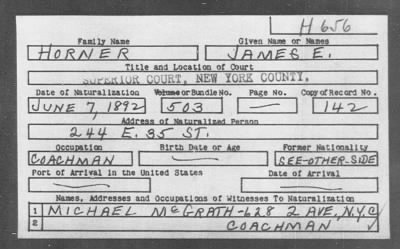 H 656
Family Name Given Name or Names
HORNER JAMES E.
Title and Location of Court
SUPERIOR COURT, NEW YORK COUNTY.
Date of Naturalization Volume or Bundle No. Page No. Copy of Record No.
JUNE 7, 1892 503 — 142
Address of Naturalized Person
244 E. 35 ST.
Occupation Birth Date or Age Former Nationality
COACHMAN — SEE-OTHER-SIDE
Port of Arrival in the United States Date of Arrival
— —
Names, Addresses and Occupations of Witnesses To Naturalization
1 MICHAEL McGRATH-628 2 AVE, N.Y.C
2 COACHMAN